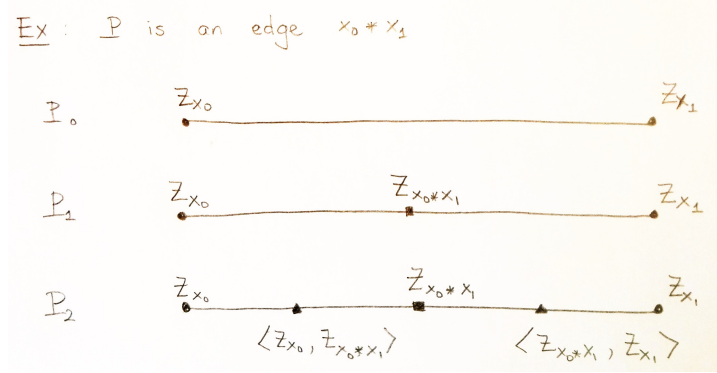 Ex : P is an edge x₀ * x₁
Z_{x₀} Z_{x₁}
P₀
Z_{x₀} Z_{x₀*x₁} Z_{x₁}
P₁
Z_{x₀} Z_{x₀*x₁} Z_{x₁}
P₂
⟨Z_{x₀}, Z_{x₀*x₁}⟩ ⟨Z_{x₀*x₁}, Z_{x₁}⟩